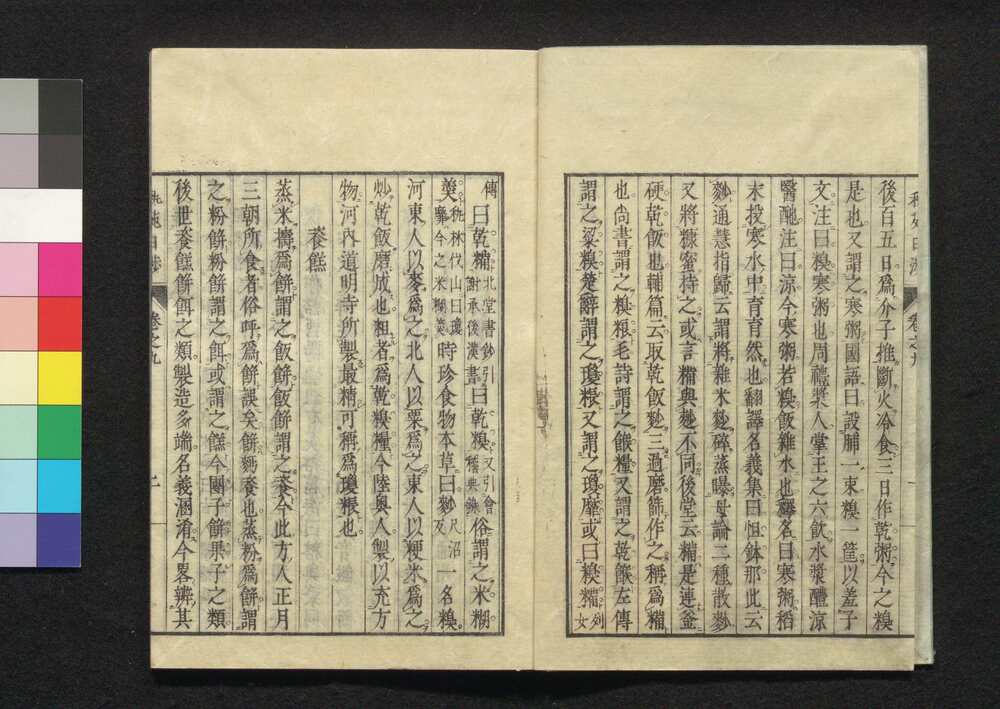 後百五日爲介子推斷火冷食三日作乾粥今之糗
是也又謂之寒粥國語曰設脯一束糗一筐以羞子
文注曰糗寒粥也周禮漿人掌王之六飲水漿醴涼
醫酏注曰涼今寒粥若糗飯雜水也釋名曰寒粥稻
末投寒水中育育然也翻譯名義集曰怛鉢那此云
麨通慧指歸云謂將雜米麨碎蒸曝母論二種散麨
又將糠蜜持之或言糒與麨不同後堂云糒是連釜
硬乾飯也輔篇云取乾飯麨三過磨篩作之稱爲糒
也尚書謂之糗粮毛詩謂之餱糧又謂之乾餱左傳
謂之粱糗楚辭謂之瓊粻又謂之瓊靡或曰糗糧
列女
傳曰乾糒
北堂書鈔引
謝承後漢書
曰乾糗
又引會
稽典錄
俗謂之米糊
羹
秕林伐山曰瓊
靡今之米糊羹
時珍食物本草曰麨
尺沼
反
一名糗
河東人以麥爲之北人以粟爲之東人以粳米爲之
炒乾飯磨成也粗者爲乾糗糧今陸奧人製以充方
物河內道明寺所製最精可稱爲瓊粻也
餈餻
蒸米擣爲餅謂之飯餅飯餅謂之餈今此方人正月
三朝所食者俗呼爲餅誤矣餅麪餈也蒸粉爲餅謂
之粉餅粉餅謂之餌或謂之餻今團子餅果子之類
後世餈餻餅餌之類製造多端名義溷淆今畧辨其
卷之九
卷之九